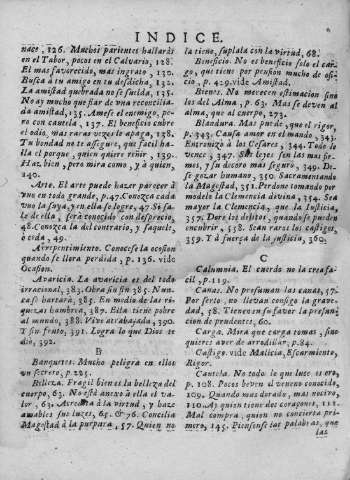 INDICE.
nace, 126. Muchos parientes hallarás
en el Tabor, pocos en el Calvario, 128.
El mas favorecido, mas ingrato, 130.
Busca à tu amigo en tu desdicha, 132.
La amistad quebrada no se suelda, 135.
No ay mucho que fiar de vna reconcilia-
da amistad, 135. Amese el enemigo, pe-
ro con cautela, 137. El beneficio cubre
el odio, mas raras vezes lo apaga, 138.
Tu bondad no te assegure, que facil ha-
lla el porque, quien quiere reñir, 139.
Haz, bien, pero mira como, y à quien,
140.
Arte. El arte puede hazer parecer à
vno en todo grande, p. 47. Conozca cada
vno la suya, y en ella se logre, 47. Si sa-
le de ella, serà conocido con desprecio,
48. Conozca la del contrario, y saquele,
ò ceda, 49.
Arrepentimiento. Conocese la ocasion
quando se llora perdida, p. 136. vide
Ocasion.
Avaricia. La avaricia es del todo
irracional, 383. Obra sin fin 385. Nun-
ca se hartarà, 385. En medio de las ri-
quezas hambrea, 387. Esta tiene pobre
al mundo, 388. Vive atrabajada, 390.
Y sin fruto, 391. Logra lo que Dios te
dio, 392.
B
Banquetes. Mucho peligra en ellos
un secreto, p. 225.
Belleza. Fragil bien es la belleza del
cuerpo, 63. No està anexo à ella el va-
lor, 63. Acredita à la virtud, y haze
amables sus luzes, 65. & 76. Concilia
Magestad à la purpura, 57. Quien no
la tiene, suplala con la virtud, 68.
Beneficio. No es beneficio solo el car-
go, que tiene por pension mucho de ofi-
cio, p. 429. vide Amistad.
Bienes. No merecen estimacion sino
los del Alma, p. 63. Mas se deven al
alma, que al cuerpo, 273.
Blandura. Mas puede, que el rigor,
p. 343. Causa amor en el mando, 343.
Entronizò à los Cesares, 344. Todo lo
vence, 347. Sus leyes son las mas fir-
mes, y su decoro mas seguro, 349. De-
se gozar humano, 350. Sacramentando
la Magestad, 351. Perdone tomando por
modelo la Clemencia divina, 354. Sea
mayor la Clemencia, que la Iusticia,
357. Dore los delitos, quando se pueden
encubrir, 358. Sean raros los castigos,
359. Y à fuerça de la justicia, 360.
C
Calumnia. El cuerdo no la crea fa-
cil, p. 119.
Canas. No presuman las canas, 57.
Por serlo, no llevan consigo la grave-
dad, 58. Tienen en su favor la presun-
cion de prudentes, 60.
Carga. Mira que carga tomas, sino
quieres aver de arrodillar, p. 84.
Castigo. vide Malicia, Escarmiento,
Rigor.
Cautela. No todo lo que luze es oro,
p. 108. Pocos beven el veneno conocido,
109. Quando mas dorado, mas nocivo,
110. Ay quien tiene dos coraçones, 112.
Mal compra, quien no concierta pri-
mero, 145. Piensense las palabras, que
las